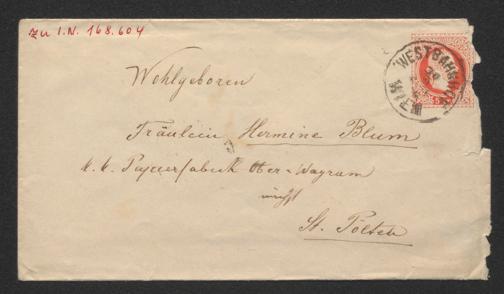 zu I.N. 168.604
WESTBAHNHOF
WIEN
Wohlgeboren
Fräulein Hermine Blum
k. k. Papierfabrik Ober-Wagram
St. Pölten